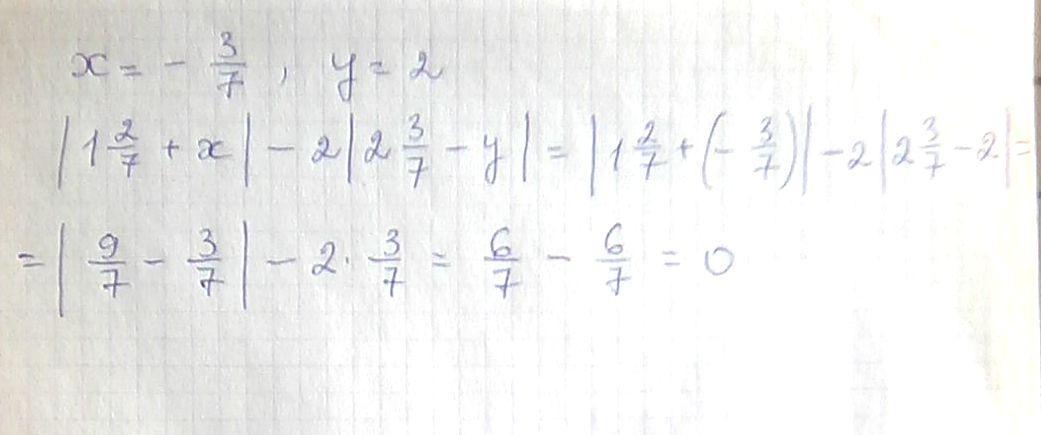 x = - 3/7 , y = 2
|1 2/7 + x| - 2|2 3/7 - y| = |1 2/7 + (- 3/7)| - 2|2 3/7 - 2| =
= |9/7 - 3/7| - 2 · 3/7 = 6/7 - 6/7 = 0